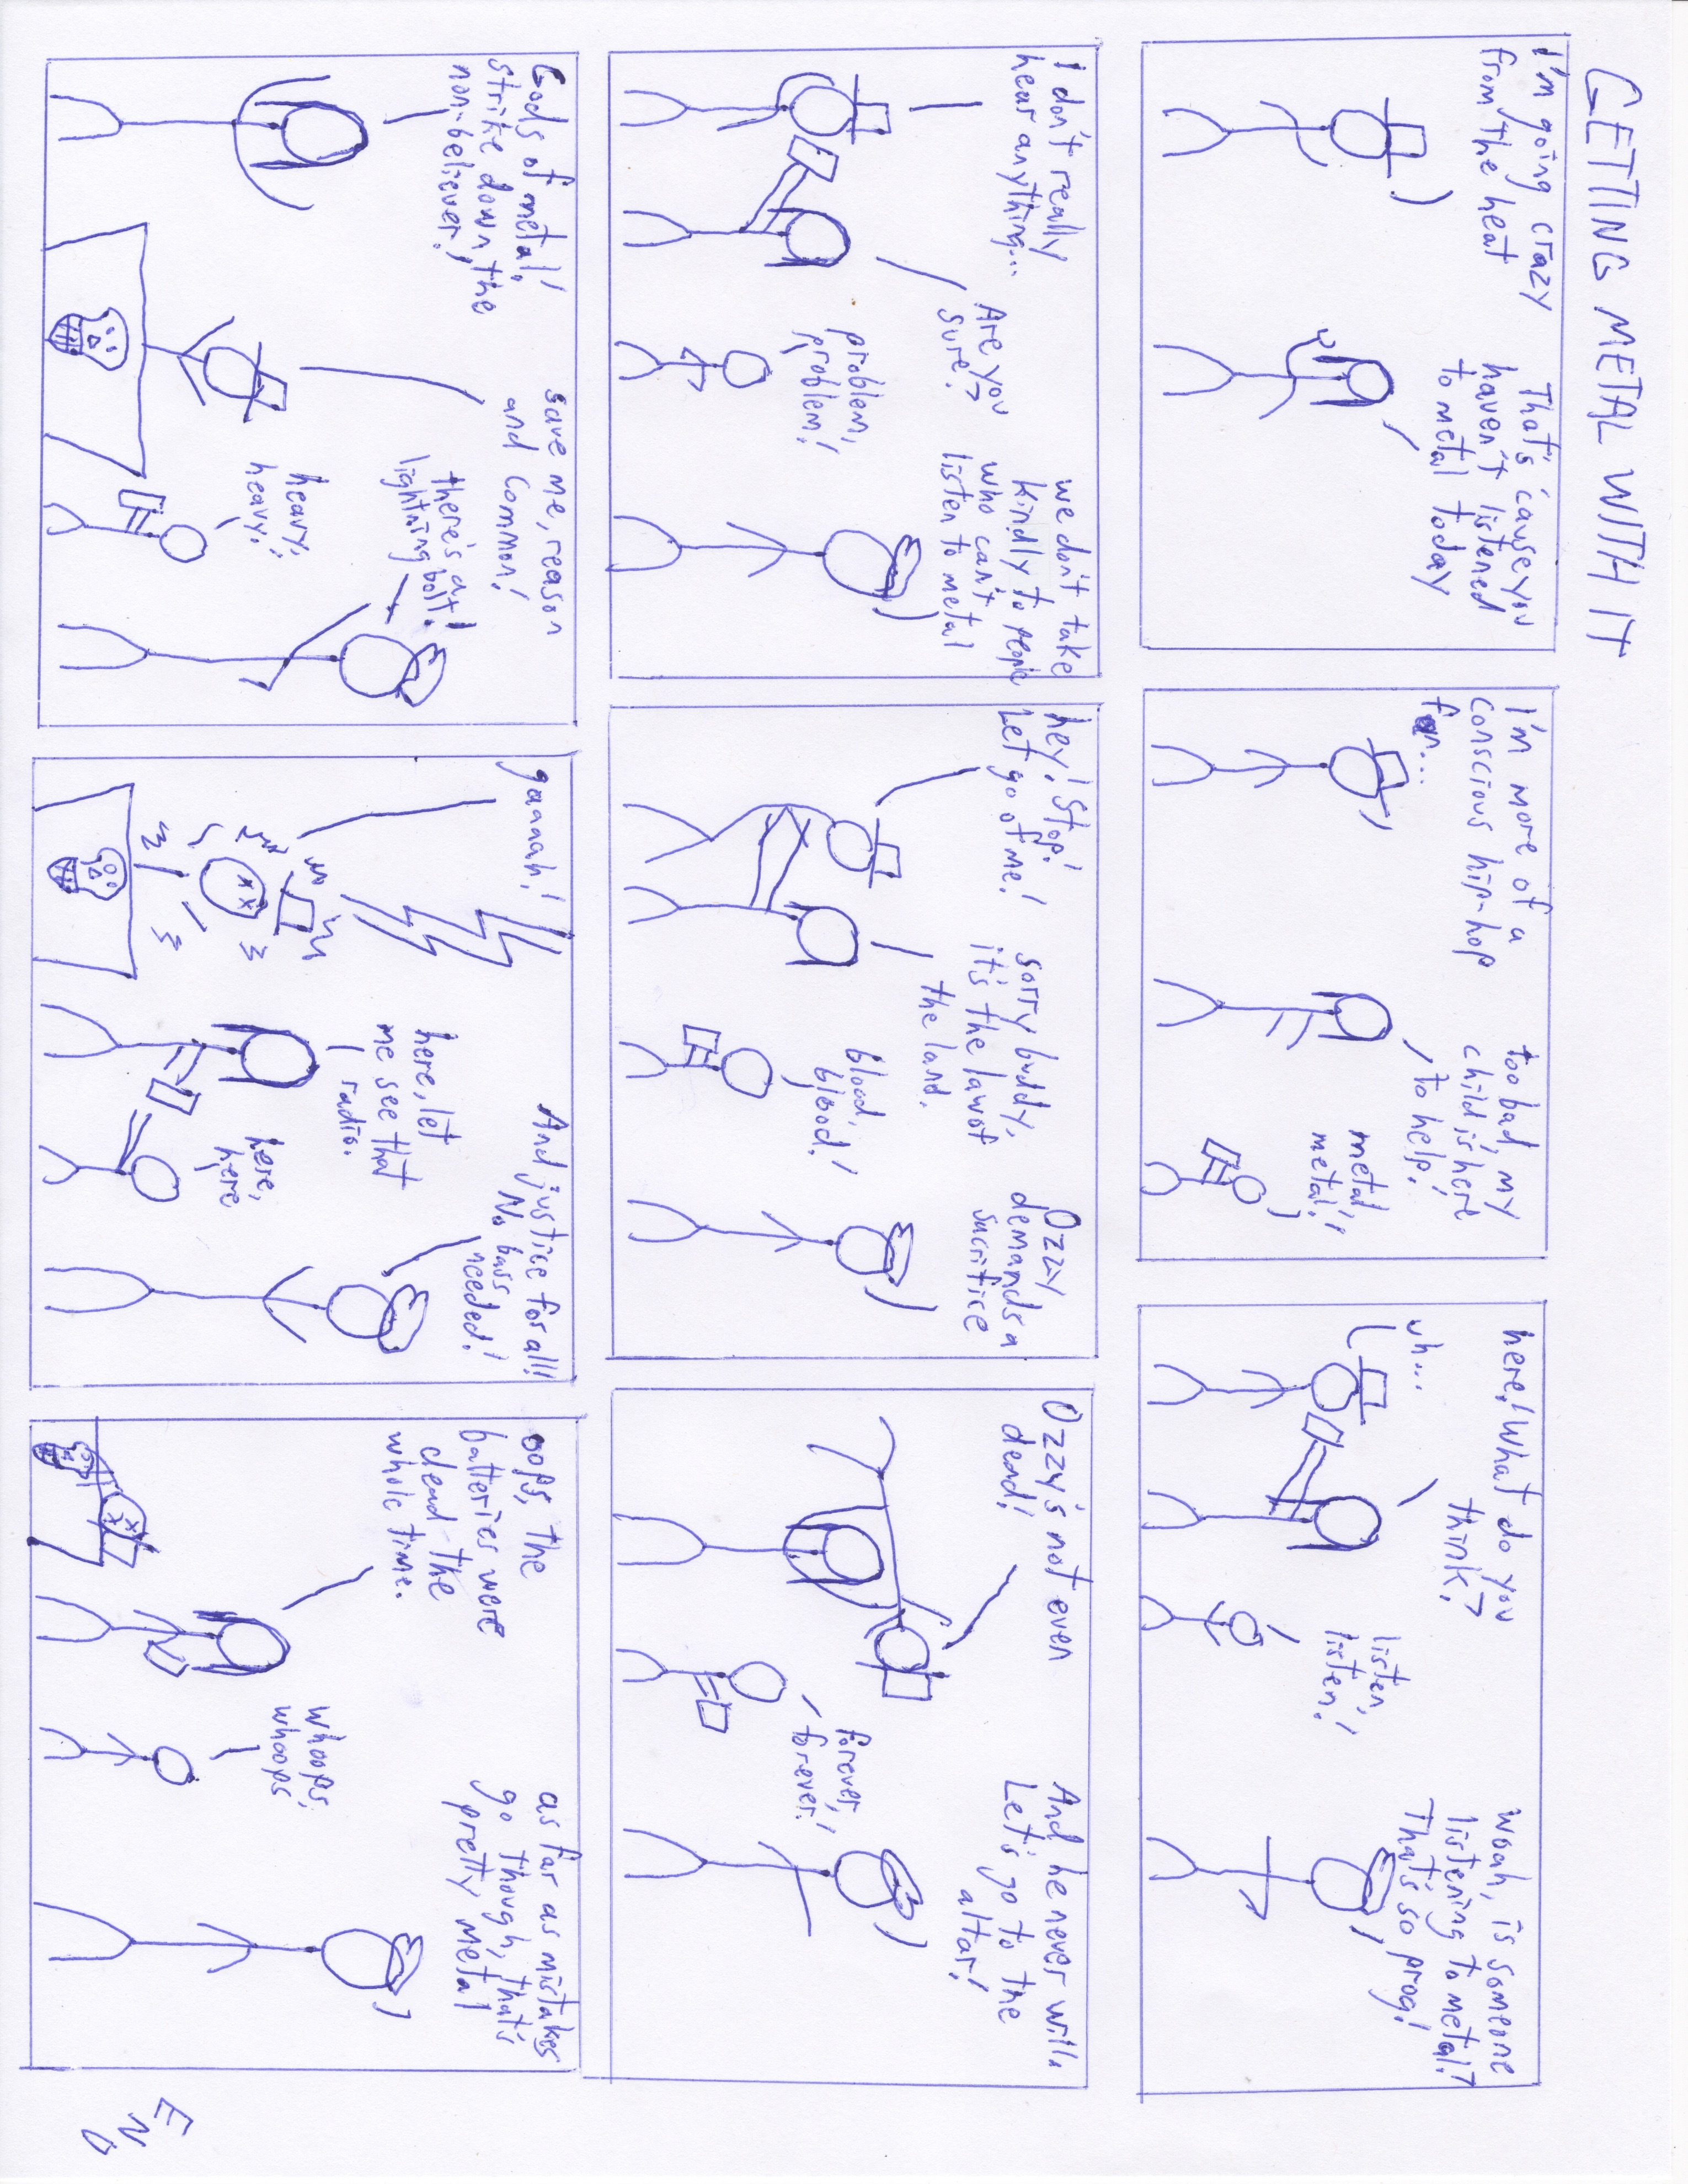 GETTING METAL WITH IT
I'm going crazy
from the heat
That's 'cause you
haven't listened
to metal today
I'm more of a
conscious hip-hop
fan...
too bad, my
child is here
to help!
metal,
metal!
here! What do you
think?
uh...
listen,
listen!
woah, is someone
listening to metal?
That's so prog!
I don't really
hear anything...
Are you
sure?
problem,
problem!
we don't take
kindly to people
who can't
listen to metal
hey! Stop!
Let go of me!
sorry buddy,
it's the law of
the land.
blood,
blood!
Ozzy
demands a
sacrifice
Ozzy's not even
dead!
forever,
forever!
And he never will.
Let's go to the
altar!
Gods of metal,
strike down the
non-believer!
save me, reason
and Common!
heavy,
heavy!
there's a
lightning bolt!
gaaaah!
here, let
me see that
radio.
here,
here
And justice for all!
No bass
needed!
oops, the
batteries were
dead the
whole time.
whoops,
whoops
as far as mistakes
go though, that's
pretty metal
END